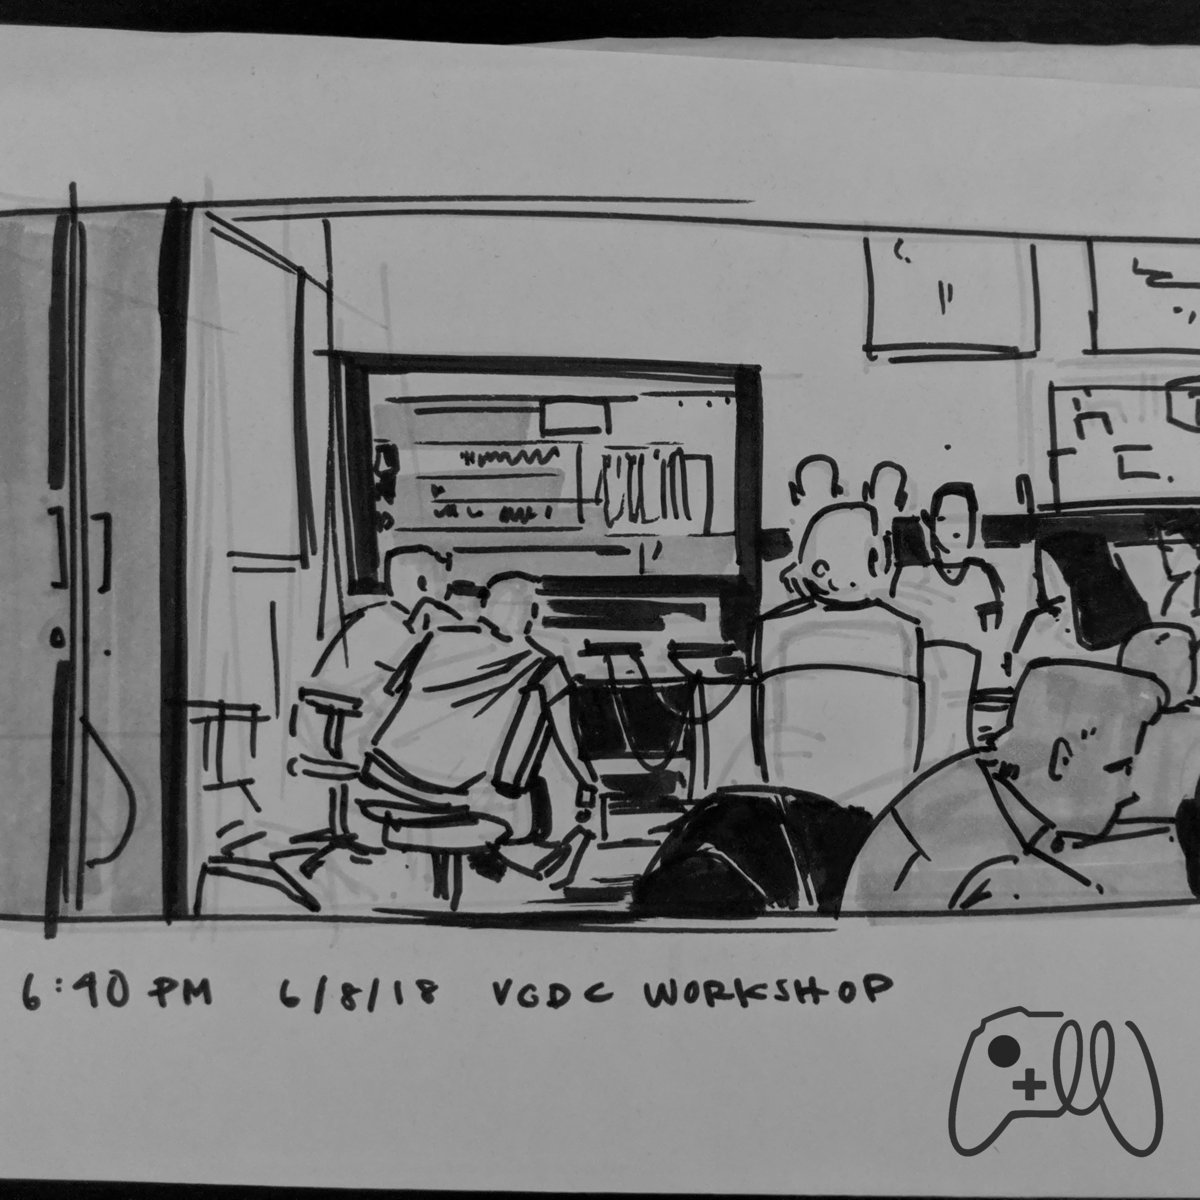 6:40 PM 6/8/18 VGDC WORKSHOP